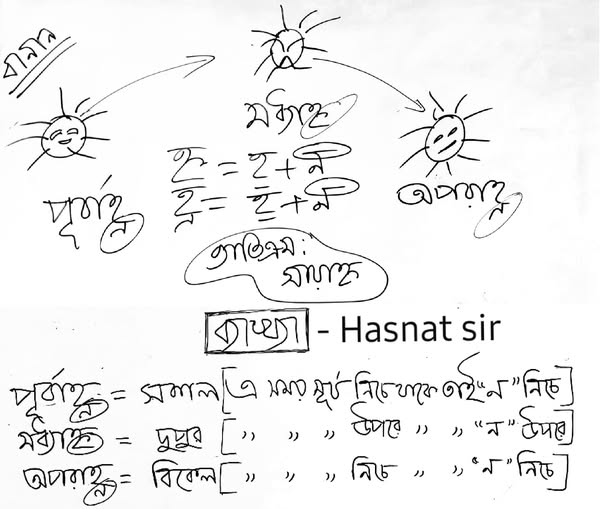 বানান
মধ্যাহ্ন
পূর্বাহ্ণ
অপরাহ্ণ
হ্ন = হ + ন
হ্ণ = হ + ন
ব্যতিক্রম:
সায়াহ্ন
ব্যাখ্যা - Hasnat sir
পূর্বাহ্ণ = সকাল [এ সময় সূর্য নিচে থাকে তাই "ন" নিচে]
মধ্যাহ্ন = দুপুর [ " " " উপরে " " "ন" উপরে]
অপরাহ্ণ = বিকেল [ " " " নিচে " " "ন" নিচে]